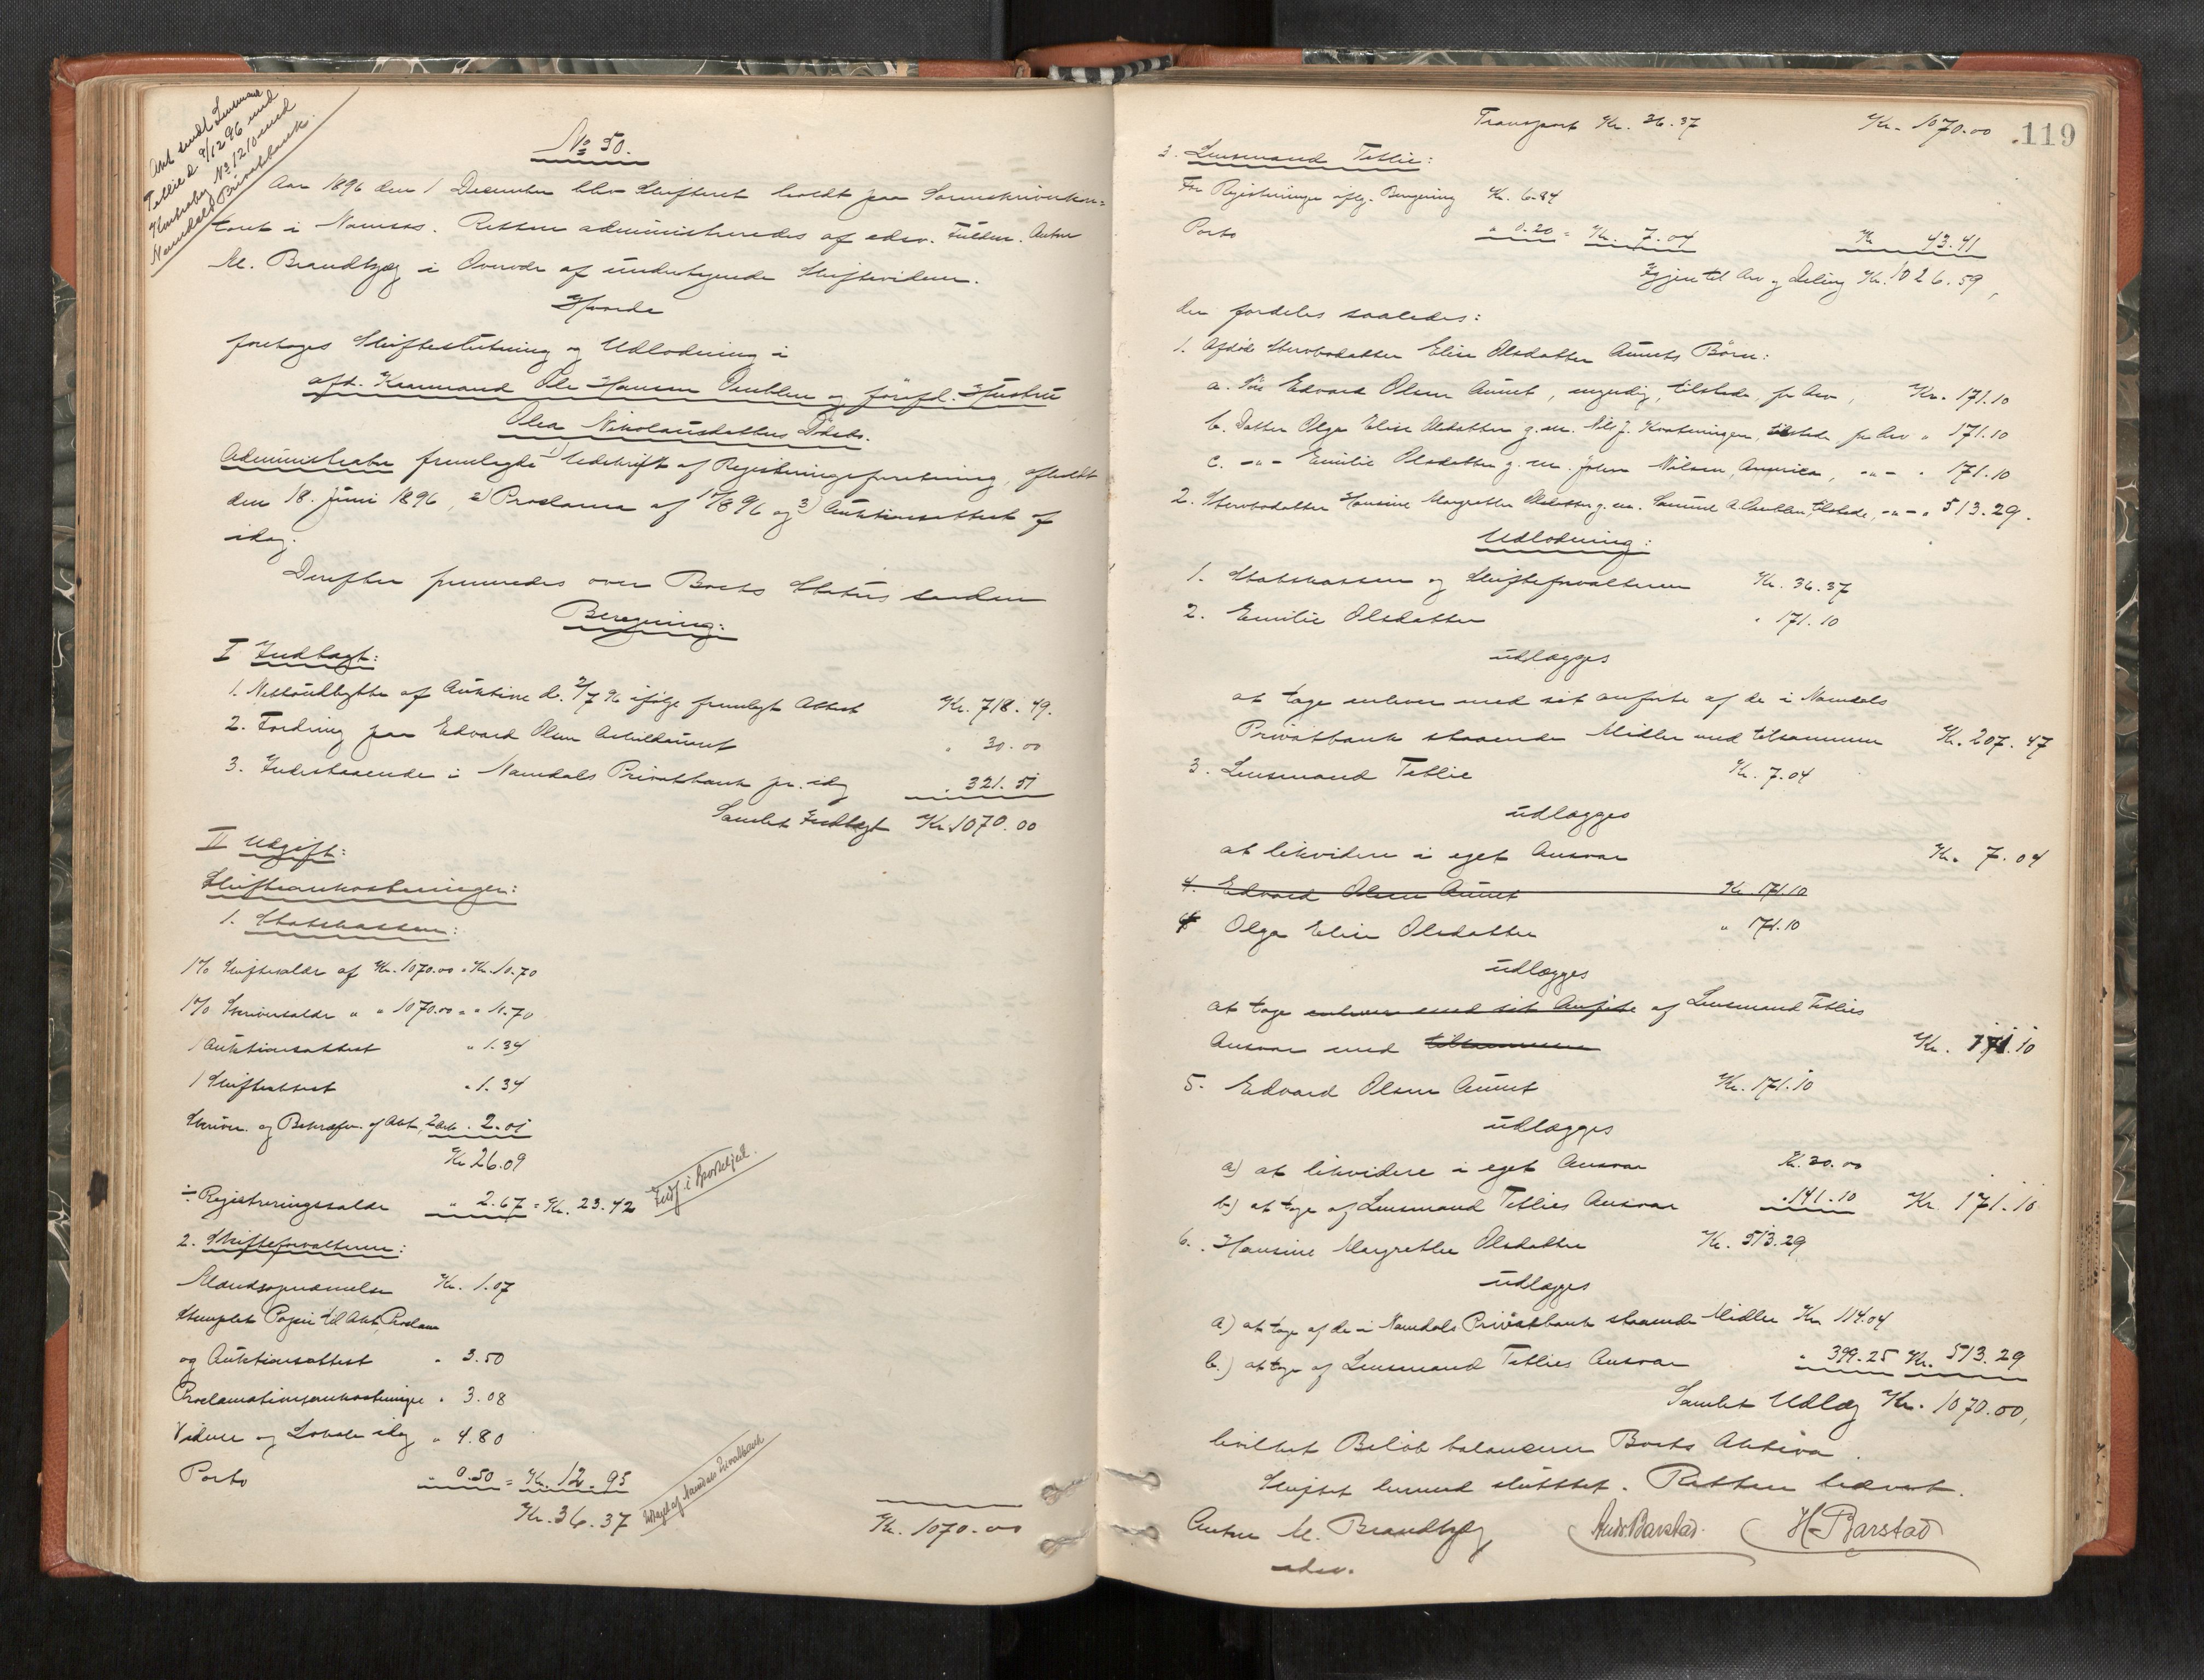 Akt sendt Lensmand
Tetlie d. 9/12 96 med
Kontrabog No 1210 med
Namdals Privatbank.
No 50.
Aar 1896 den 1 December blev Skifteret holdt paa Sorenskriverkon=
toret i Namsos. Retten administreredes af edsv. Fuldm. Anton
M. Brandtzæg i Overvær af undertegnede Skiftevidner.
Hvorda
foretoges Skifteslutning og Udlodning i
afd. Kaarmand Ole Hansen Devblen og forefd. Hustru
Olea Nikolausdatters Dødsbo.
Administrator fremlagde 1) Udskrift af Registreringsforretning, afholdt
den 18. Juni 1896, 2) Proclama af 17/6 96 og 3) Auktionsattest af
idag.
Derefter fremredes over Boets Status saadan
Beregning:
I Indtægt:
1. Nettoudbytte af Auktion d. 2/7 96 ifølge fremlagt Attest Kr. 718.49.
2. Fordring paa Edvard Olsen " 30.00
3. Indestaaende i Namdals Privatbank pr. idag " 321.51
Samlet Indtægt Kr. 1070.00
II Udgift:
Skifteomkostninger:
1. Statskassen:
1% Skiftesalær af Kr. 1070.00 = Kr. 10.70
1% Skriversalær " " 1070.00 = " 10.70
1 Auktionsattest " 1.34
1 Skifteattest " 1.34
Skriver. og Bekræft. af Akt, 2 Ark " 2.01
Kr 26.09
÷ Registreringssalær " 2.67 = Kr. 23.42
Indf. i Sporteljnl.
2. Skifteforvalteren:
Mandsopnævnelse Kr. 1.07
Stemplet Papir til Akt, Proclam
og Auktionsattest " 3.50
Proclamationsomkostninger " 3.08
Vidner og Lokale idag " 4.80
Porto " 0.50 = Kr. 12.95
Kr. 36.37
Udtaget af Namdals Privatbank
Kr. 1070.00
119
Transport Kr. 36.37 Kr. 1070.00
3. Lensmand Tetlie:
For Registreringen iflg. Beregning Kr. 6.84
Porto " 0.20 = Kr. 7.04 Kr 43.41
Igjen til Arv og Deling Kr. 1026.59,
der fordeles saaledes:
1. Afdøde Stervbodatter Elise Olsdatter Aunets Børn:
a. Søn Edvard Olsen Aunet, myndig, tilstede, for Arv, Kr. 171.10
b. Datter Olga Elise Olsdatter g. m. Nils J. Kvatningen, tilstede, for Arv " 171.10
c. -"- Emilie Olsdatter g. m. Johan Nilsen, America, -"- " 171.10
2. Stervbodatter Hansine Margrethe Olsdatter g. m. Samuel A. Devblen, tilstede, -"- " 513.29.
Udlodning:
1. Statskassen og Skifteforvalteren Kr. 36.37
2. Emilie Olsdatter " 171.10
udlægges
at tage enhver med sit anførte af de i Namdals
Privatbank staaende Midler med tilsammen Kr. 207.47
3. Lensmand Tetlie Kr. 7.04
udlægges
at likvidere i eget Ansvar Kr. 7.04
4. Edvard Olsen Aunet Kr 171.10
4 Olga Elise Olsdatter " 171.10
udlægges
at tage enhver med sit Anførte af Lensmand Tetlies
Ansvar med tilsammen Kr. 171.10
5. Edvard Olsen Aunet Kr. 171.10
udlægges
a) at likvidere i eget Ansvar Kr. 30.00
b) at tage af Lensmand Tetlies Ansvar " 141.10 Kr. 171.10
6. Hansine Margrethe Olsdatter Kr. 513.29
udlægges
a) at tage af de i Namdals Privatbank staaende Midler Kr 114.04
b.) at tage af Lensmand Tetlies Ansvar " 399.25 Kr. 513.29
Samlet Udlæg Kr. 1070.00,
hvilket Beløb balancerer Boets Aktiva
Skiftet hermed sluttet. Retten hævet.
Anton M. Brandtzæg Andr. Barstad. H. Barstad
edsv.